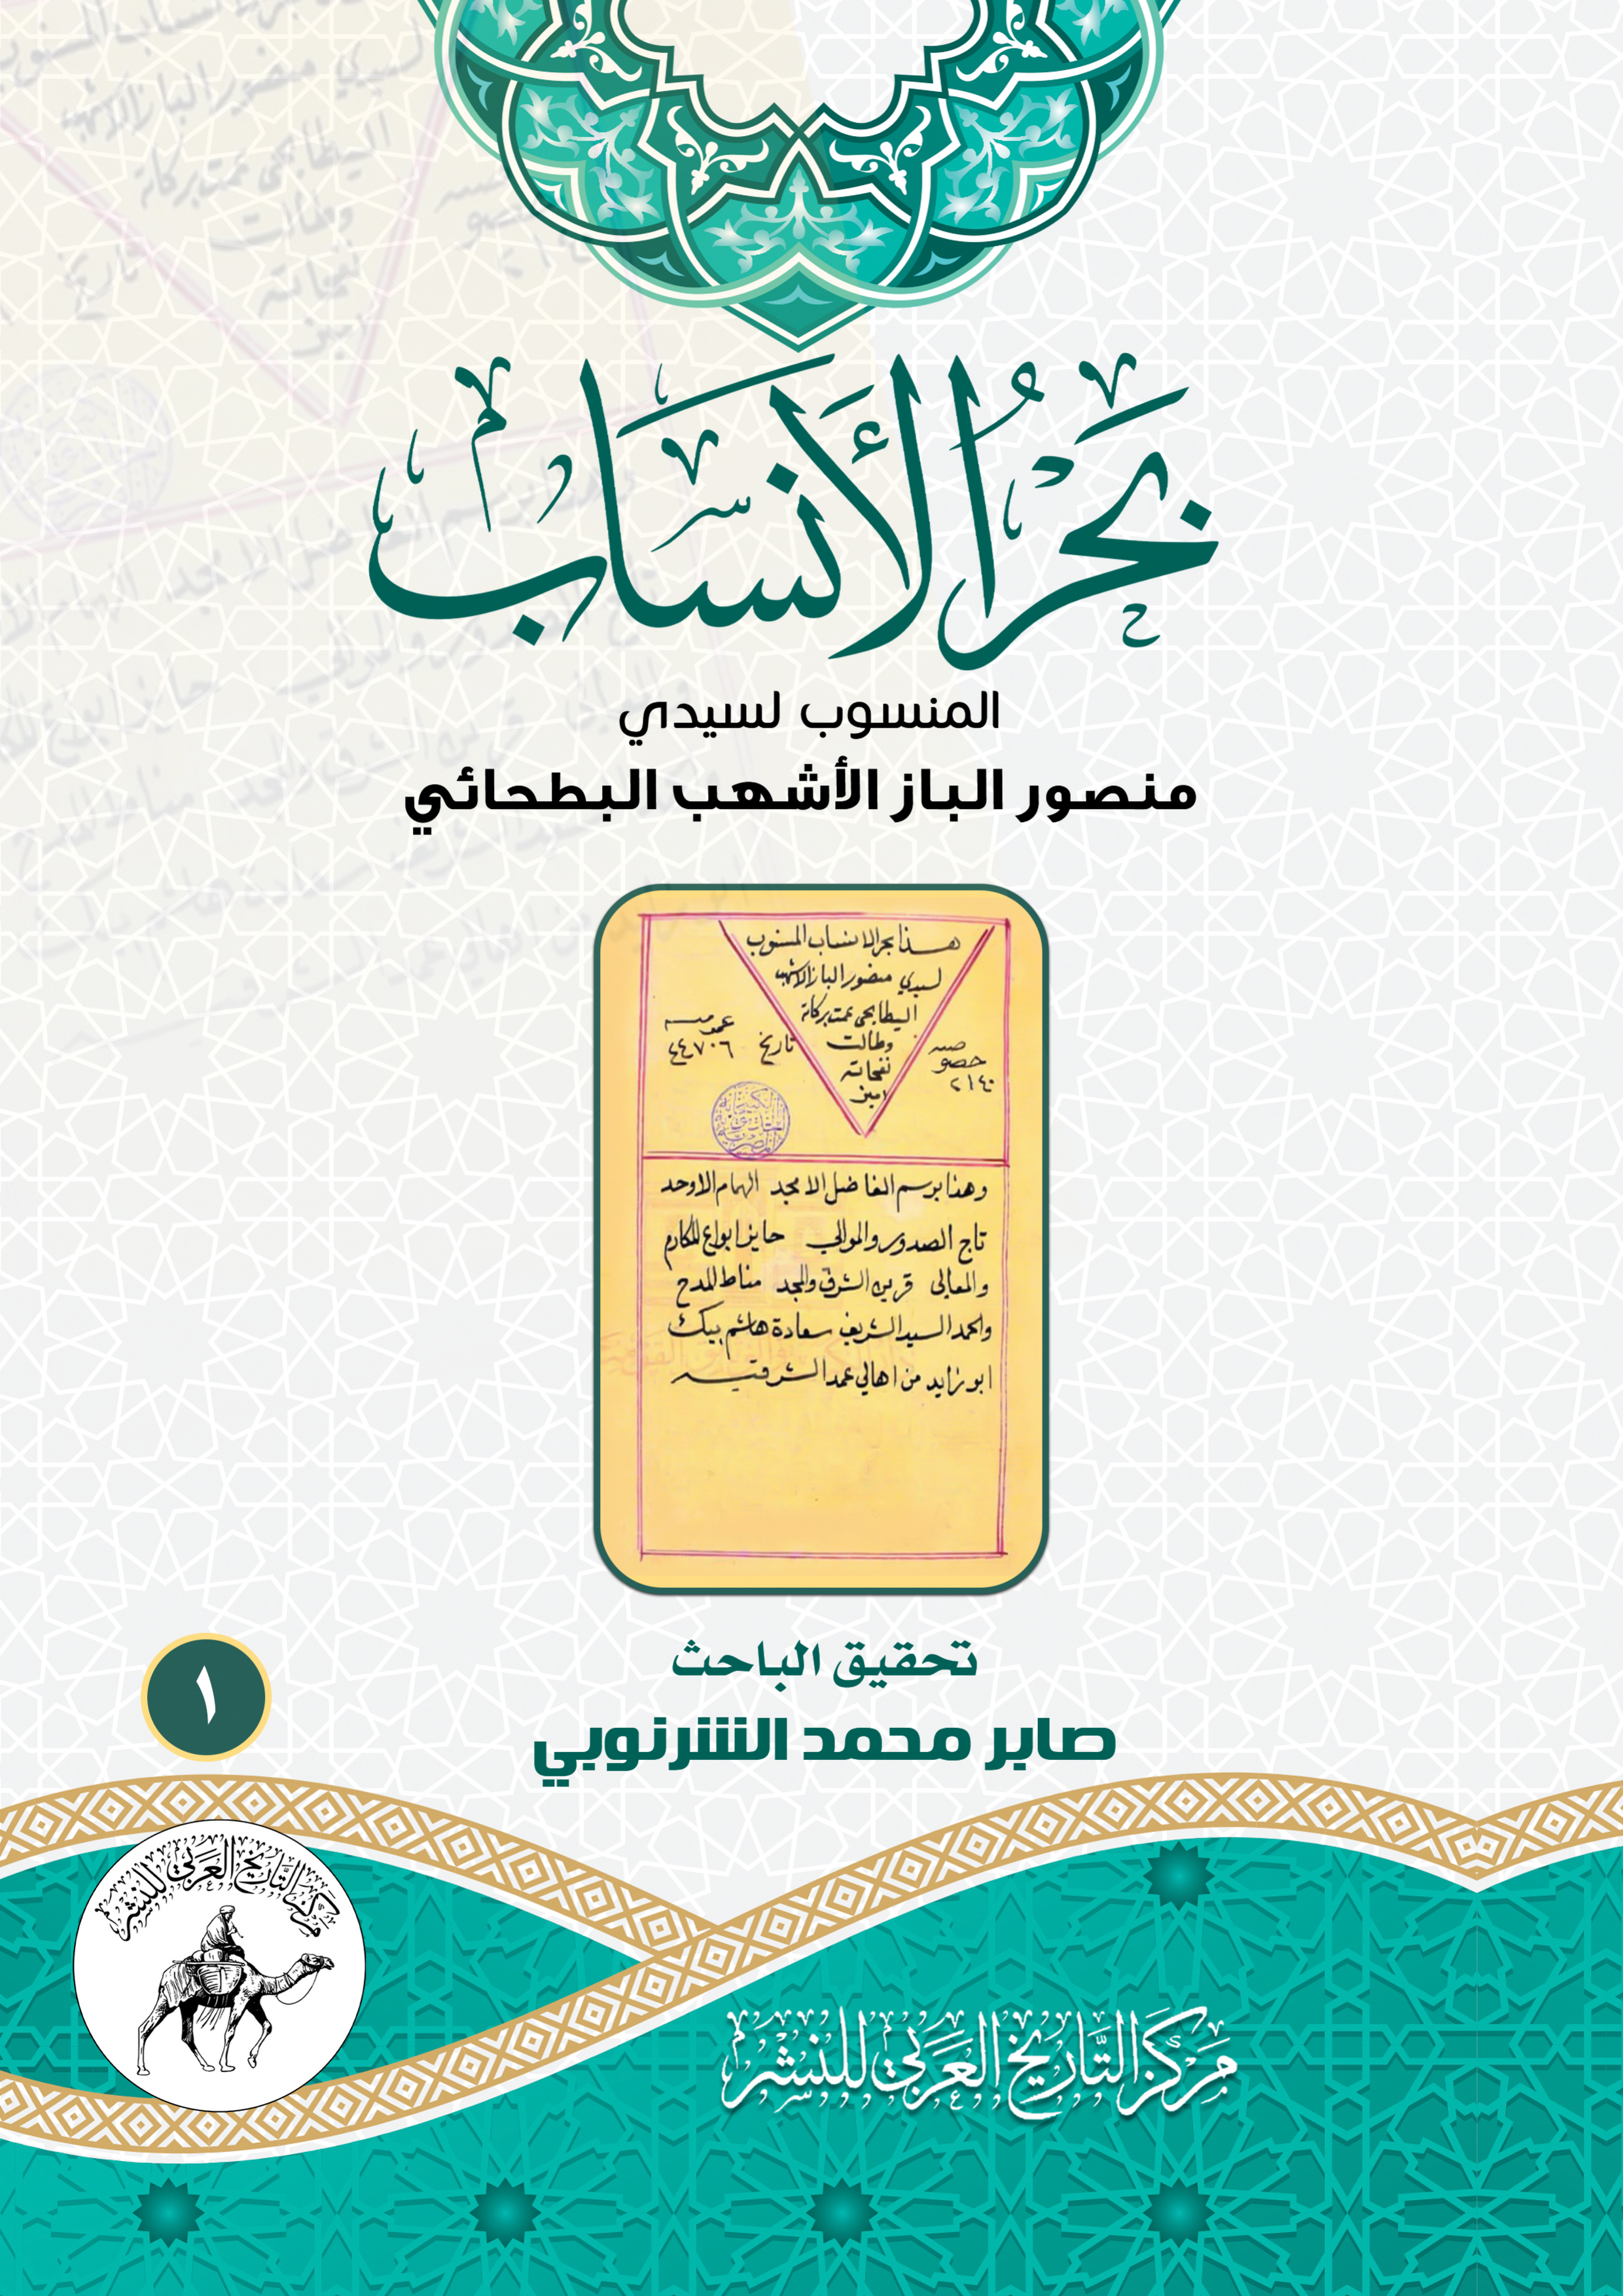 بَحْرُ الأَنسَاب
المنسوب لسيدي
منصور الباز الأشهب البطحائي
هذا بحر الانساب المنسوب
لسيدي منصور الباز الاشهب
البطايحى عمت بركاته
وطالت
نفحاته
امين
خصوصيه
٢١٤٠
تاريخ
عموميه
٤٤٧٠٦
الكتبخانة
المصرية
وهذا برسم الفاضل الامجد الهمام الاوحد
تاج الصدور والموالي حايز ابواع المكارم
والمعالى قرين الشرف والمجد مناط المدح
والحمد السيد الشريف سعادة هاشم بيك
ابو زايد من اهالي عمد الشرقيه
تحقيق الباحث
صابر محمد الشرنوبي
١
مركز التاريخ العربي للنشر
مَركز التَّاريخ العَربي للنشر